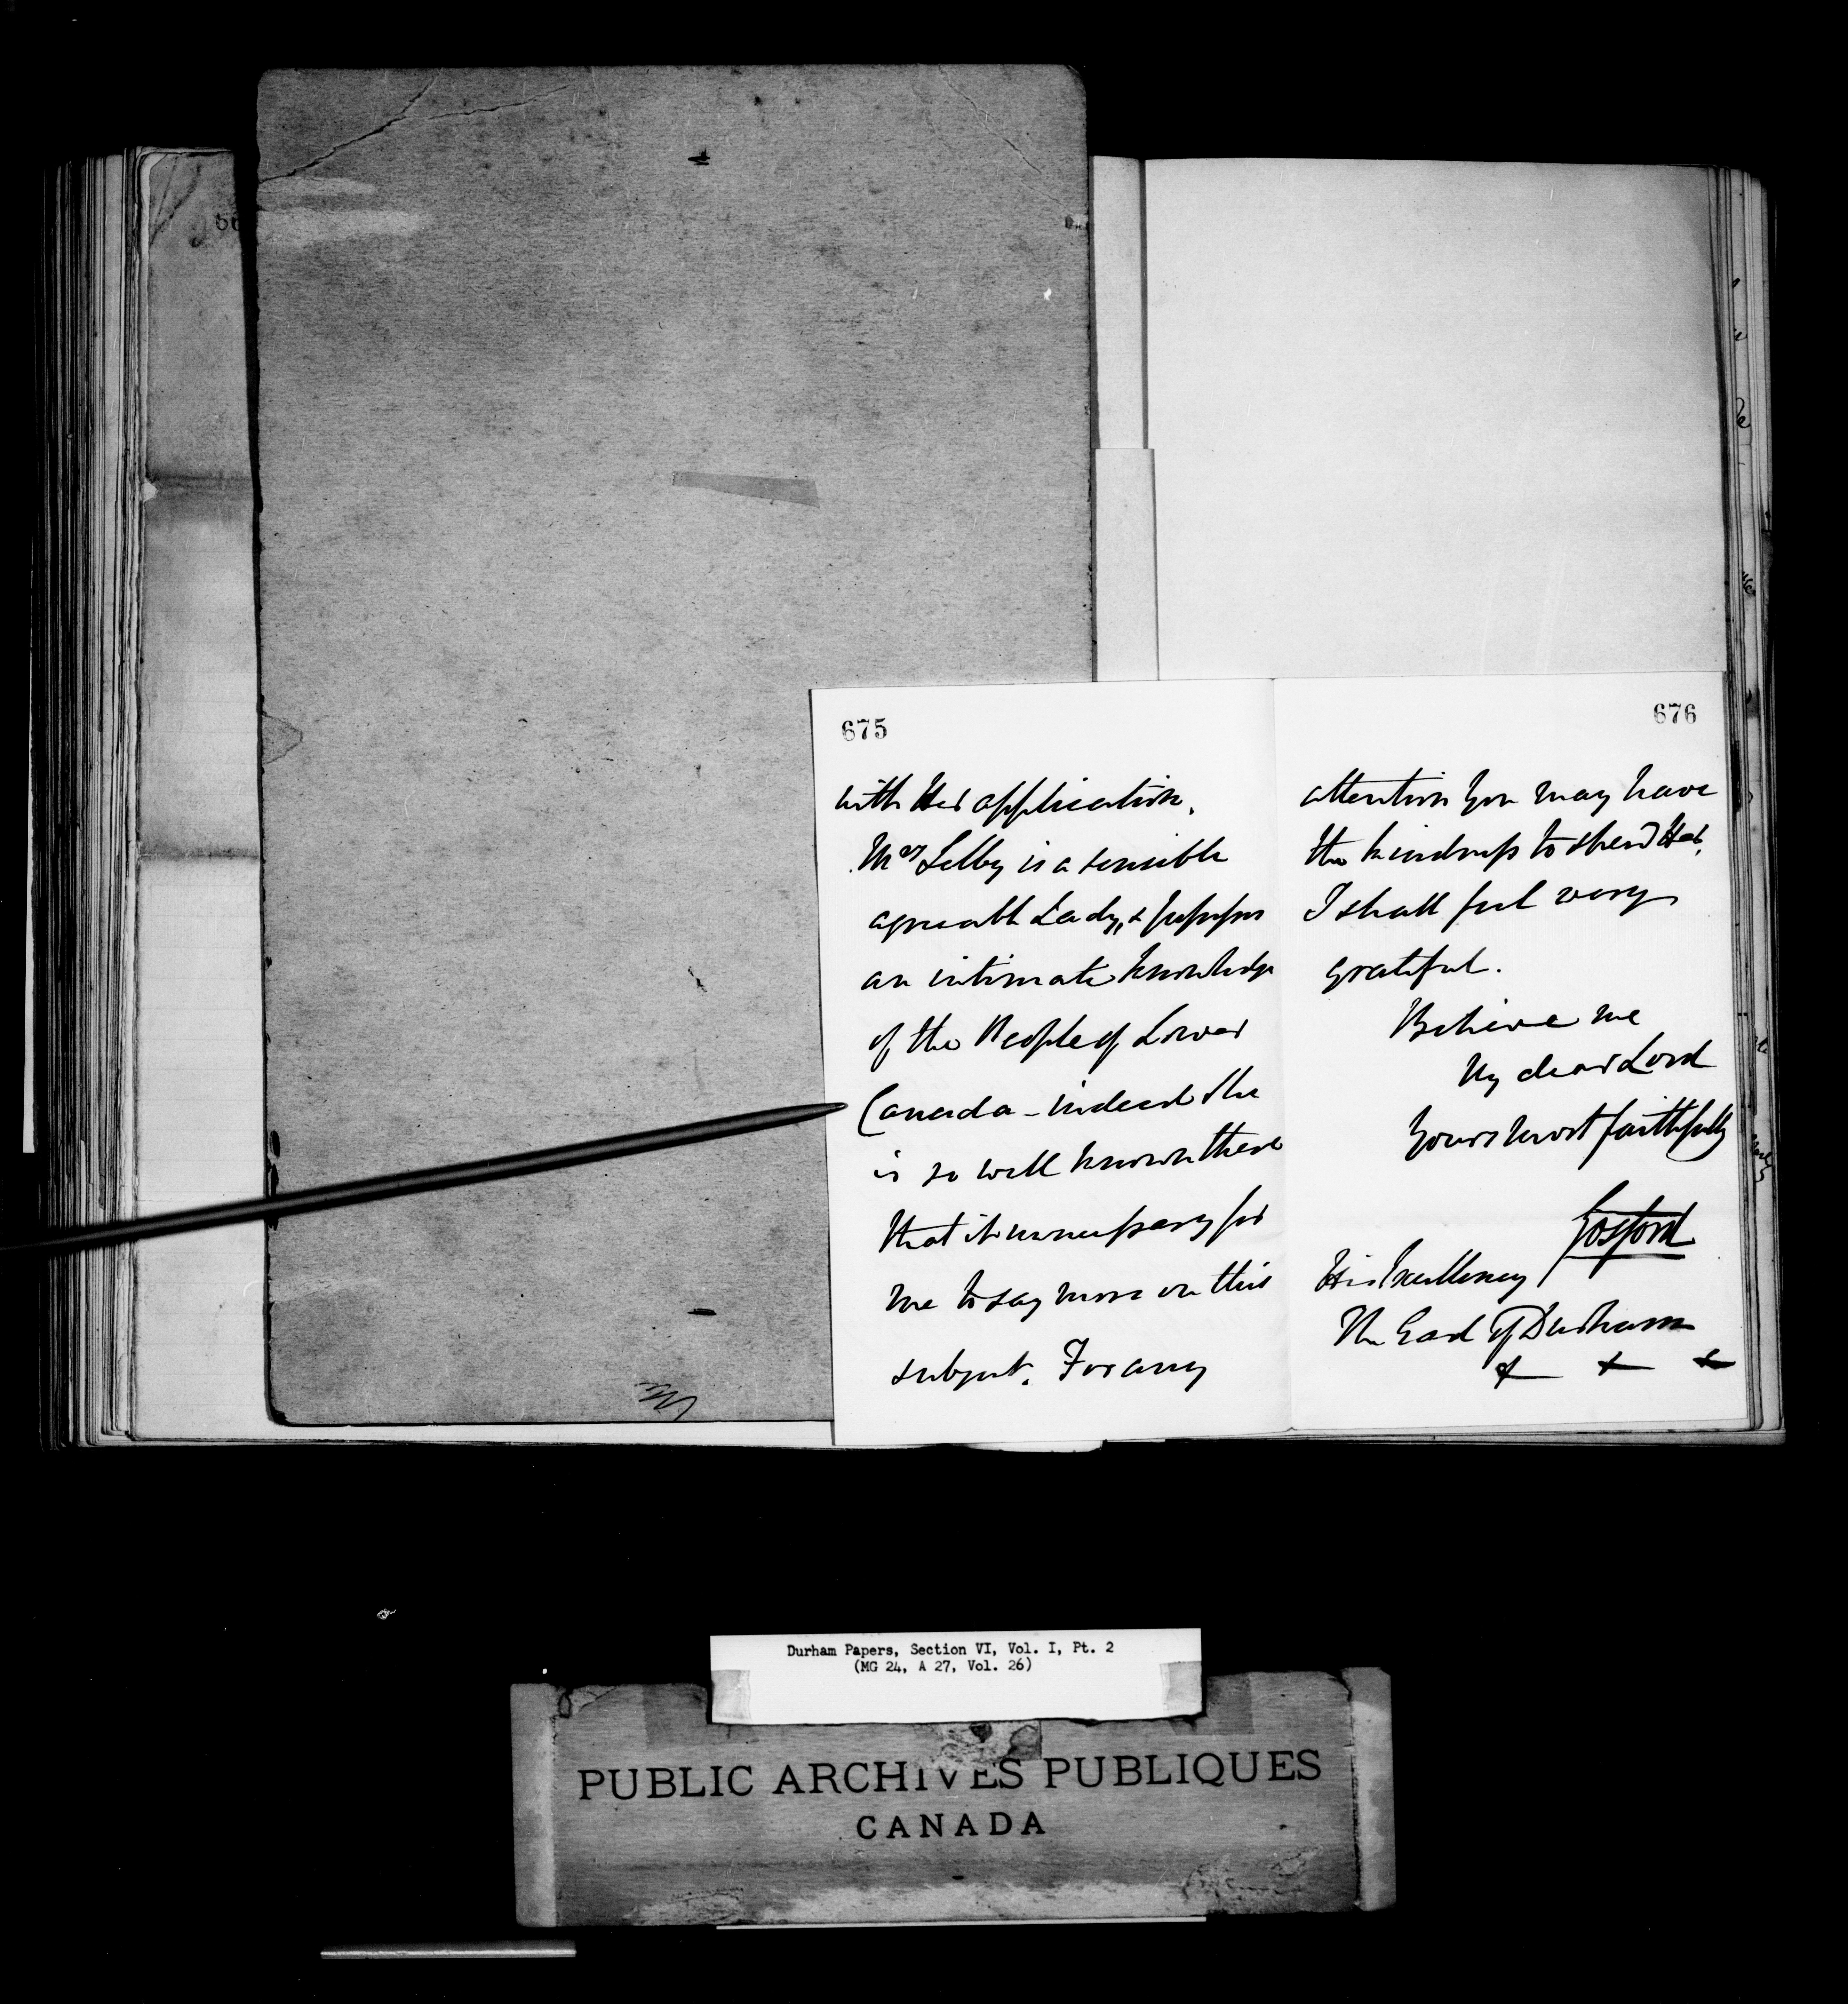 675
with Her application.
Mrs Selby is a sensible
agreeable Lady, & possesses
an intimate knowledge
of the People of Lower
Canada - indeed she
is so well known there
that it is unnecessary for
me to say more on this
subject. For any
676
attention you may have
the kindness to shew Her,
I shall feel very
grateful.
Believe me
My dear Lord
Yours most faithfully
Gosford
His Excellency
The Earl of Durham
& & &
Durham Papers, Section VI, Vol. I, Pt. 2
(MG 24, A 27, Vol. 26)
PUBLIC ARCHIVES PUBLIQUES
CANADA